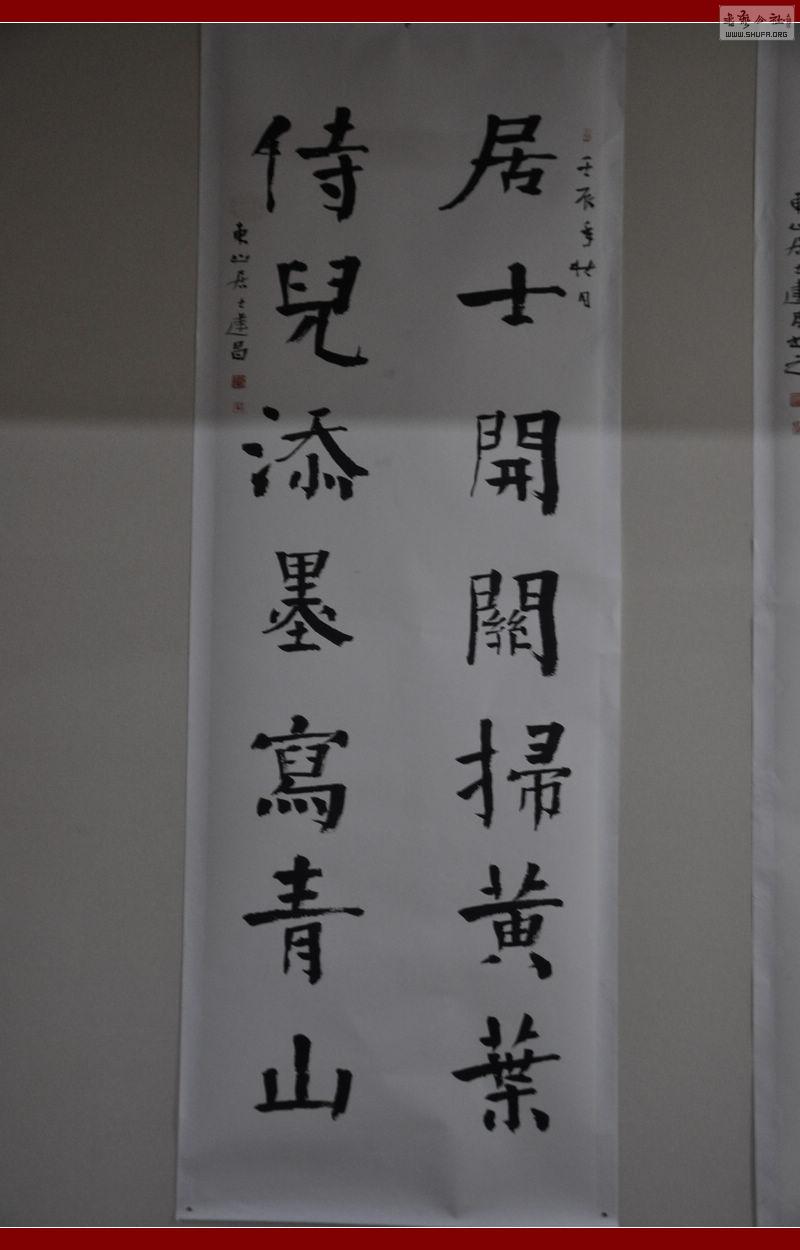 壬辰年牡月
居士開關掃黃葉
侍兒添墨寫青山
東山居士達昌
WWW.SHUFA.ORG